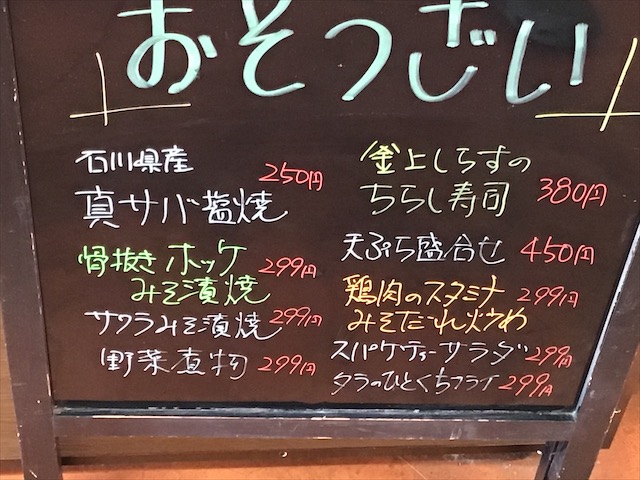 おそうざい
石川県産
真サバ塩焼 250円
骨抜きホッケ
みそ漬焼 299円
サワラみそ漬焼 299円
野菜煮物 299円
釜上しらすの
ちらし寿司 380円
天ぷら盛合せ 450円
鶏肉のスタミナ
みそだれ炒め 299円
スパゲティーサラダ 299円
タラのひとくちフライ 299円